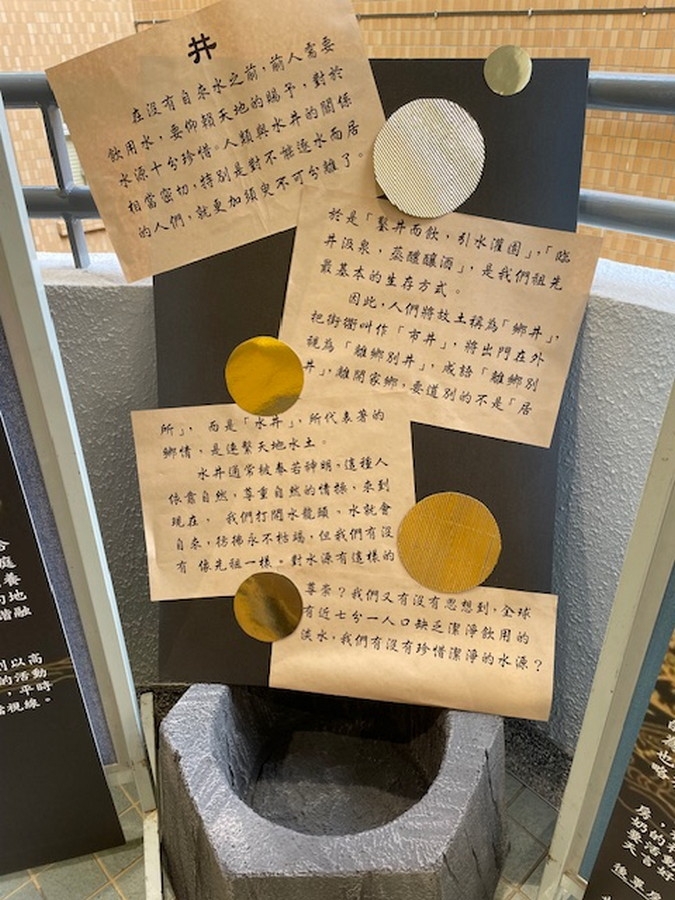 井
在沒有自來水之前，前人需要
飲用水，要仰賴天地的賜予，對於
水源十分珍惜。人類與水井的關係
相當密切，特別是對不能逐水而居
的人們，就更加須臾不可分離了。
於是「鑿井而飲，引水灌園」，「臨
井汲泉，蒸醴釀酒」，是我們祖先
最基本的生存方式。
因此，人們將故土稱為「鄉井」，
把街衢叫作「市井」，將出門在外
視為「離鄉別井」，成語「離鄉別
井」，離開家鄉，要道別的不是「居
所」， 而是「水井」，所代表著的
鄉情，是連繫天地水土。
水井通常被奉若神明，這種人
依靠自然，尊重自然的情操，來到
現在， 我們打開水龍頭、水就會
自來，彷彿永不枯竭，但我們有沒
有 像先祖一樣。對水源有這樣的
尊崇？我們又有沒有思想到，全球
有近七分一人口缺乏潔淨飲用的
淡水，我們有沒有珍惜潔淨的水源？
庭
養
的地
諧融
以高
的活動
，平時
視線。
略
房，
的
奶
活動
天言好
後單房